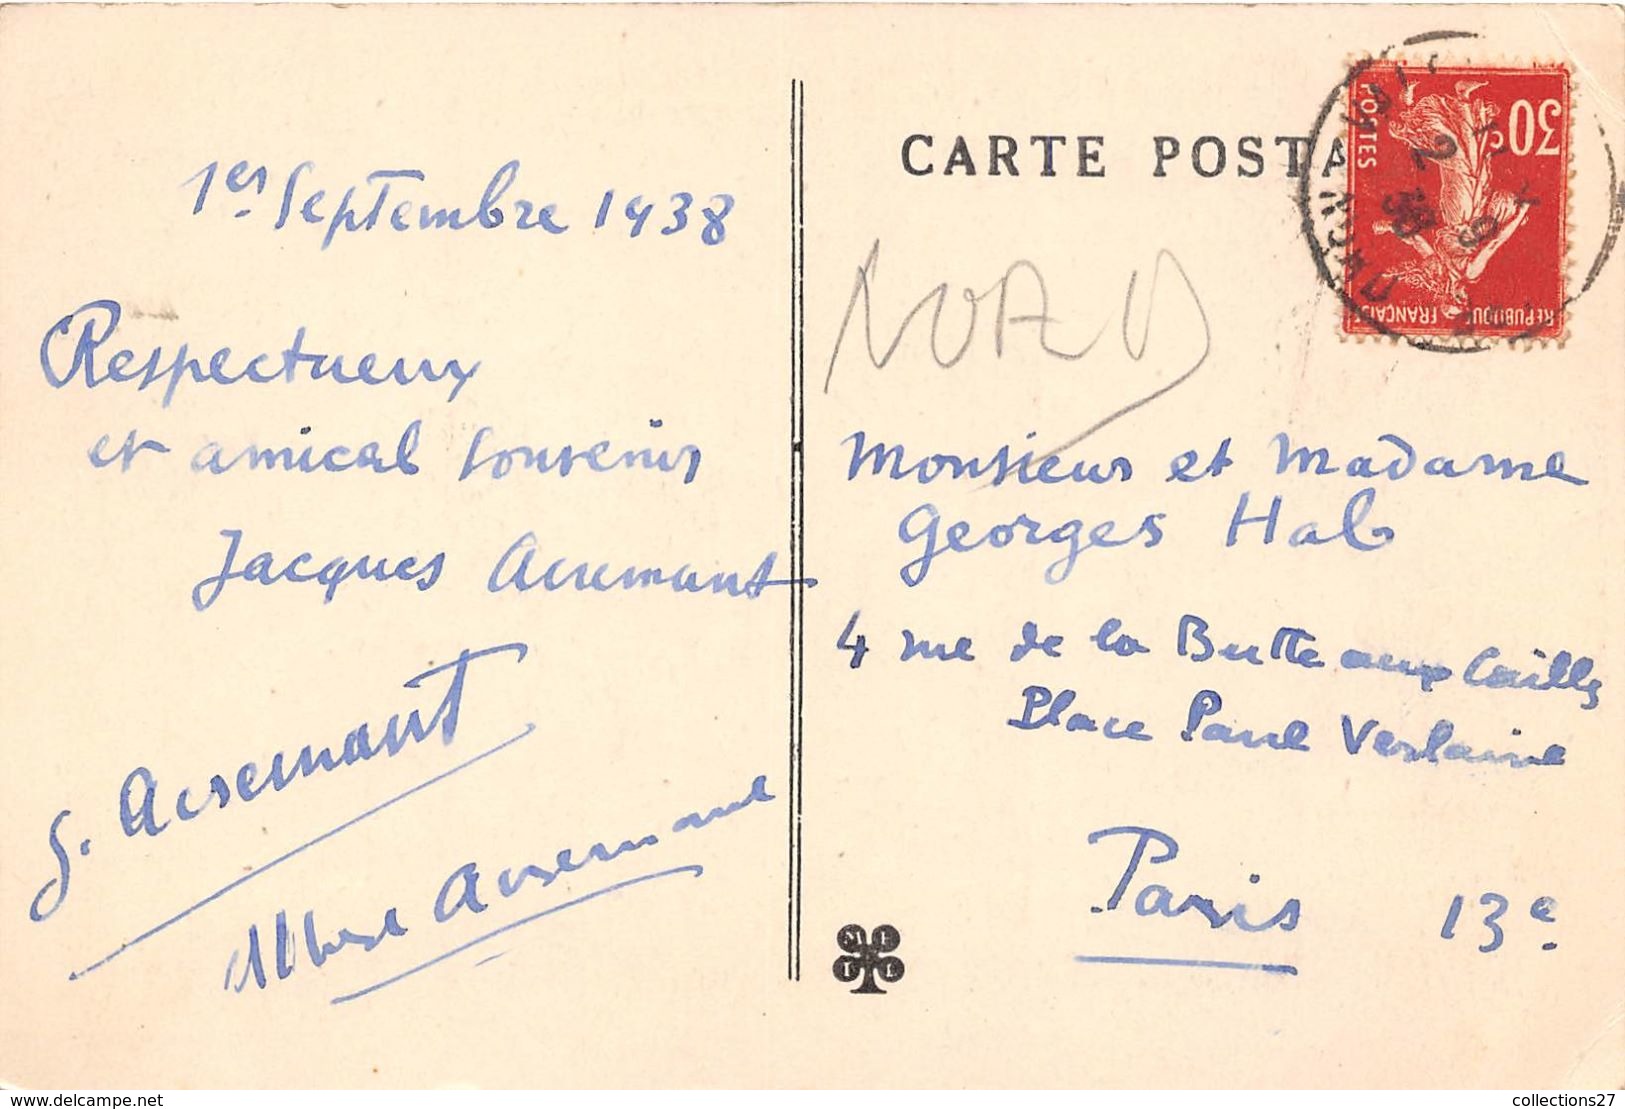 1er Septembre 1938
Respectueux
et amical souvenir
Jacques Acremant
G. Acremant
Albert Acremant
CARTE POSTA
30c
POSTES
REPUBLIQUE FRANÇAISE
2 9
38
NORD
Monsieur et Madame
Georges Hab
4 rue de la Butte aux Cailles
Place Paul Verlaine
Paris 13e
M F
T L
delcampe.net
collections27